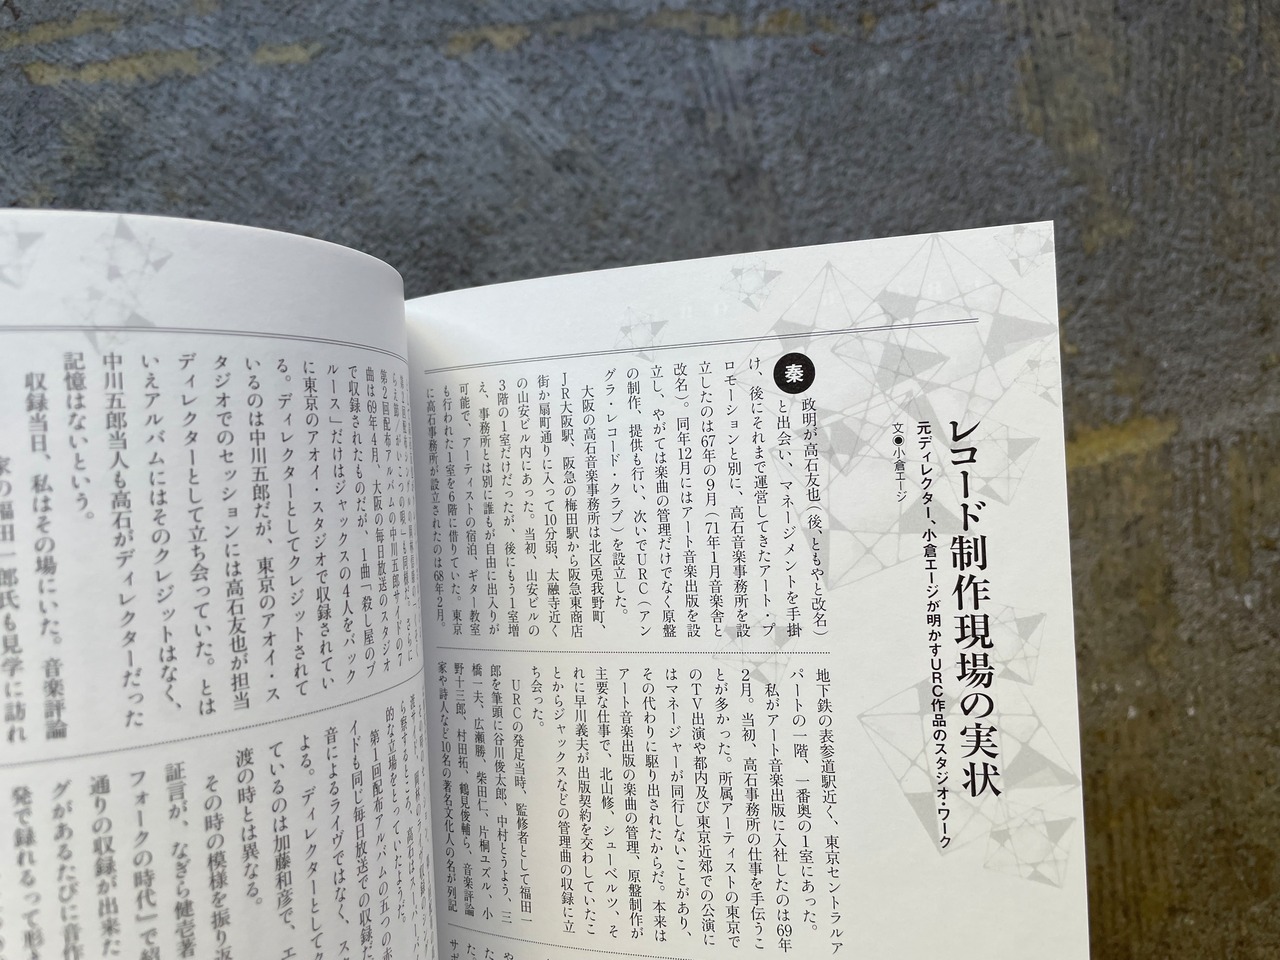 レコード制作現場の実状
元ディレクター、小倉エージが明かすURC作品のスタジオ・ワーク
文◉小倉エージ
秦政明が高石友也(後、ともやと改名)
と出会い、マネージメントを手掛
け、後にそれまで運営してきたアート・プ
ロモーションと別に、高石音楽事務所を設
立したのは67年の9月(71年1月音楽舎と
改名)。同年12月にはアート音楽出版を設
立し、やがては楽曲の管理だけでなく原盤
の制作、提供も行い、次いでURC(アン
グラ・レコード・クラブ)を設立した。
大阪の高石音楽事務所は北区兎我野町、
JR大阪駅、阪急の梅田駅から阪急東商店
街か扇町通りに入って10分弱、太融寺近く
の山安ビル内にあった。当初、山安ビルの
3階の1室だけだったが、後にもう1室増
え、事務所とは別に誰もが自由に出入りが
可能で、アーティストの宿泊、ギター教室
も行われた1室を6階に借りていた。東京
に高石事務所が設立されたのは68年2月。
地下鉄の表参道駅近く、東京セントラルア
パートの一階、一番奥の1室にあった。
私がアート音楽出版に入社したのは69年
2月。当初、高石事務所の仕事を手伝うこ
とが多かった。所属アーティストの東京で
のTV出演や都内及び東京近郊での公演に
はマネージャーが同行しないことがあり、
その代わりに駆り出されたからだ。本来は
アート音楽出版の楽曲の管理、原盤制作が
主要な仕事で、北山修、シューベルツ、そ
れに早川義夫が出版契約を交わしていたこ
とからジャックスなどの管理曲の収録に立
ち会った。
URCの発足当時、監修者として福田一
郎を筆頭に谷川俊太郎、中村とうよう、三
橋一夫、広瀬勝、柴田仁、片桐ユズル、小
野十三郎、村田拓、鶴見俊輔ら、音楽評論
家や詩人など10名の著名文化人の名が列記
第2回配布アルバムの中川五郎サイドの7
曲は69年4月、大阪の毎日放送のスタジオ
で収録されたものだが、1曲「殺し屋のブ
ルース」だけはジャックスの4人をバック
に東京のアオイ・スタジオで収録されてい
る。ディレクターとしてクレジットされて
いるのは中川五郎だが、東京のアオイ・ス
タジオでのセッションには高石友也が担当
ディレクターとして立ち会っていた。とは
いえアルバムにはそのクレジットはなく、
中川五郎当人も高石がディレクターだった
記憶はないという。
収録当日、私はその場にいた。音楽評論
家の福田一郎氏も見学に訪れ
ら察するところ、高石はスーパー
的な立場をとっていたようだ。
第1回配布アルバムの五つの赤
イドも同じ毎日放送での収録だ
音によるライヴではなく、ス
よる。ディレクターとしてク
ているのは加藤和彦で、エ
渡の時とは異なる。
その時の模様を振り返
証言が、なぎら健壱著
フォークの時代」で紹
通りの収録が出来た
グがあるたびに音作
発で録れるって形